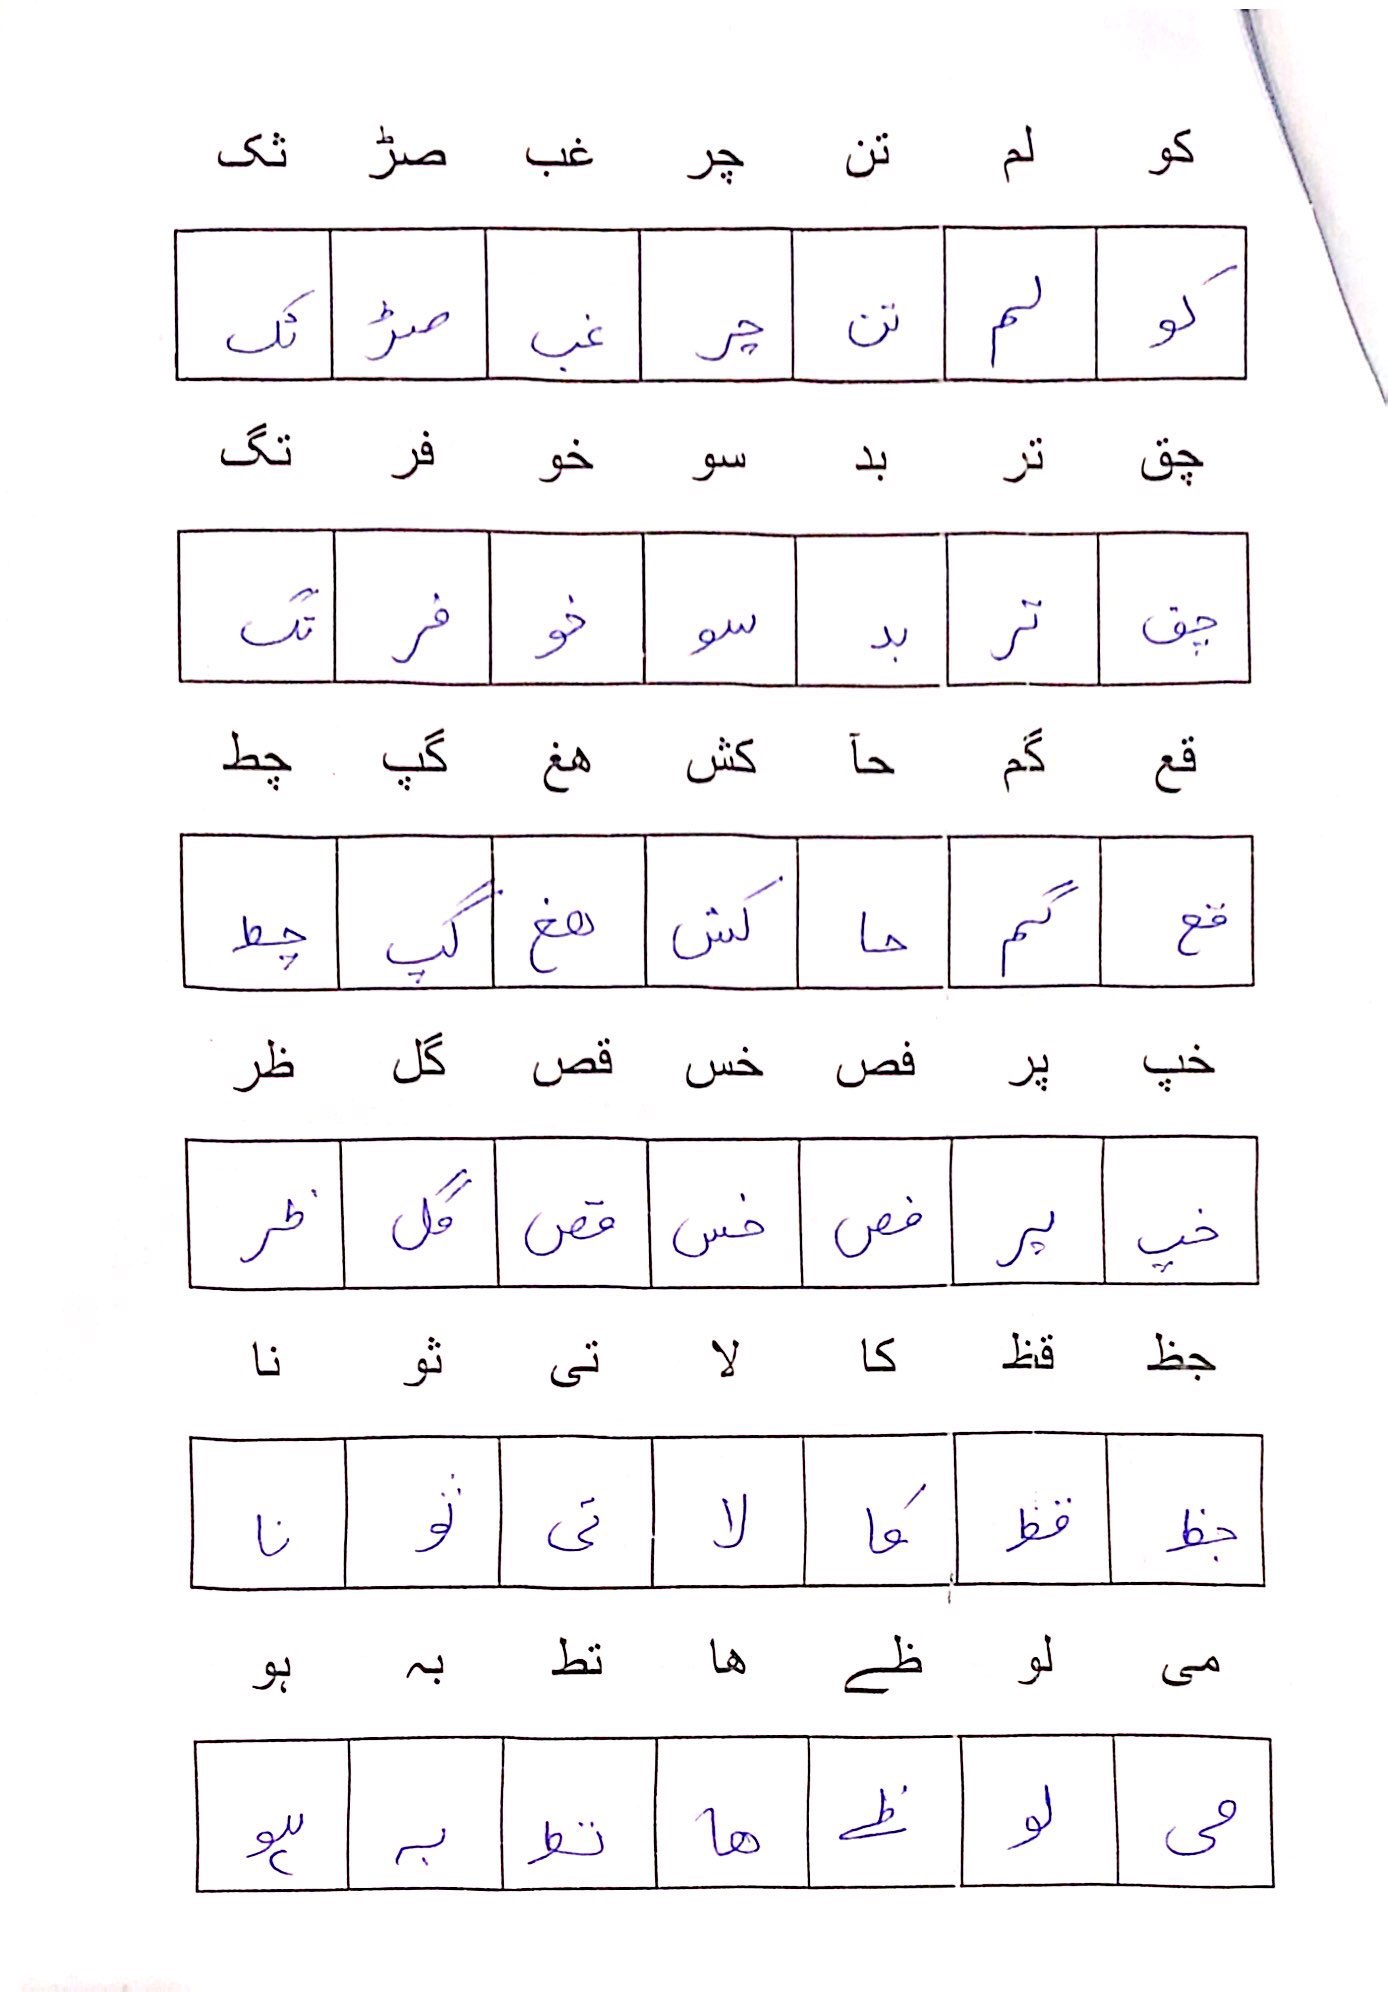 کو لم تن چر غب صڑ ثک
کو لم تن چر غب صڑ ثک
چق تر بد سو خو فر تگ
چق تر بد سو خو فر تگ
قع گم حآ کش ھغ گپ چط
قع گم حا کش ھغ گپ چط
خپ پر فص خس قص گل ظر
خپ پر فص خس قص گل ظر
جظ قظ کا لا تی ثو نا
جظ قظ کا لا تی ثو نا
می لو ظے ھا تط بہ ہو
می لو ظے ھا تط بہ ہو